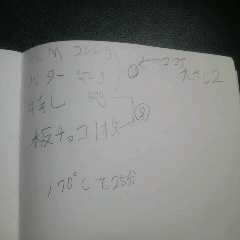 HM 200g
バター 50g ① ← ココア 大さじ2
牛乳 50g
板チョコ1枚 ②
170°Cで25分